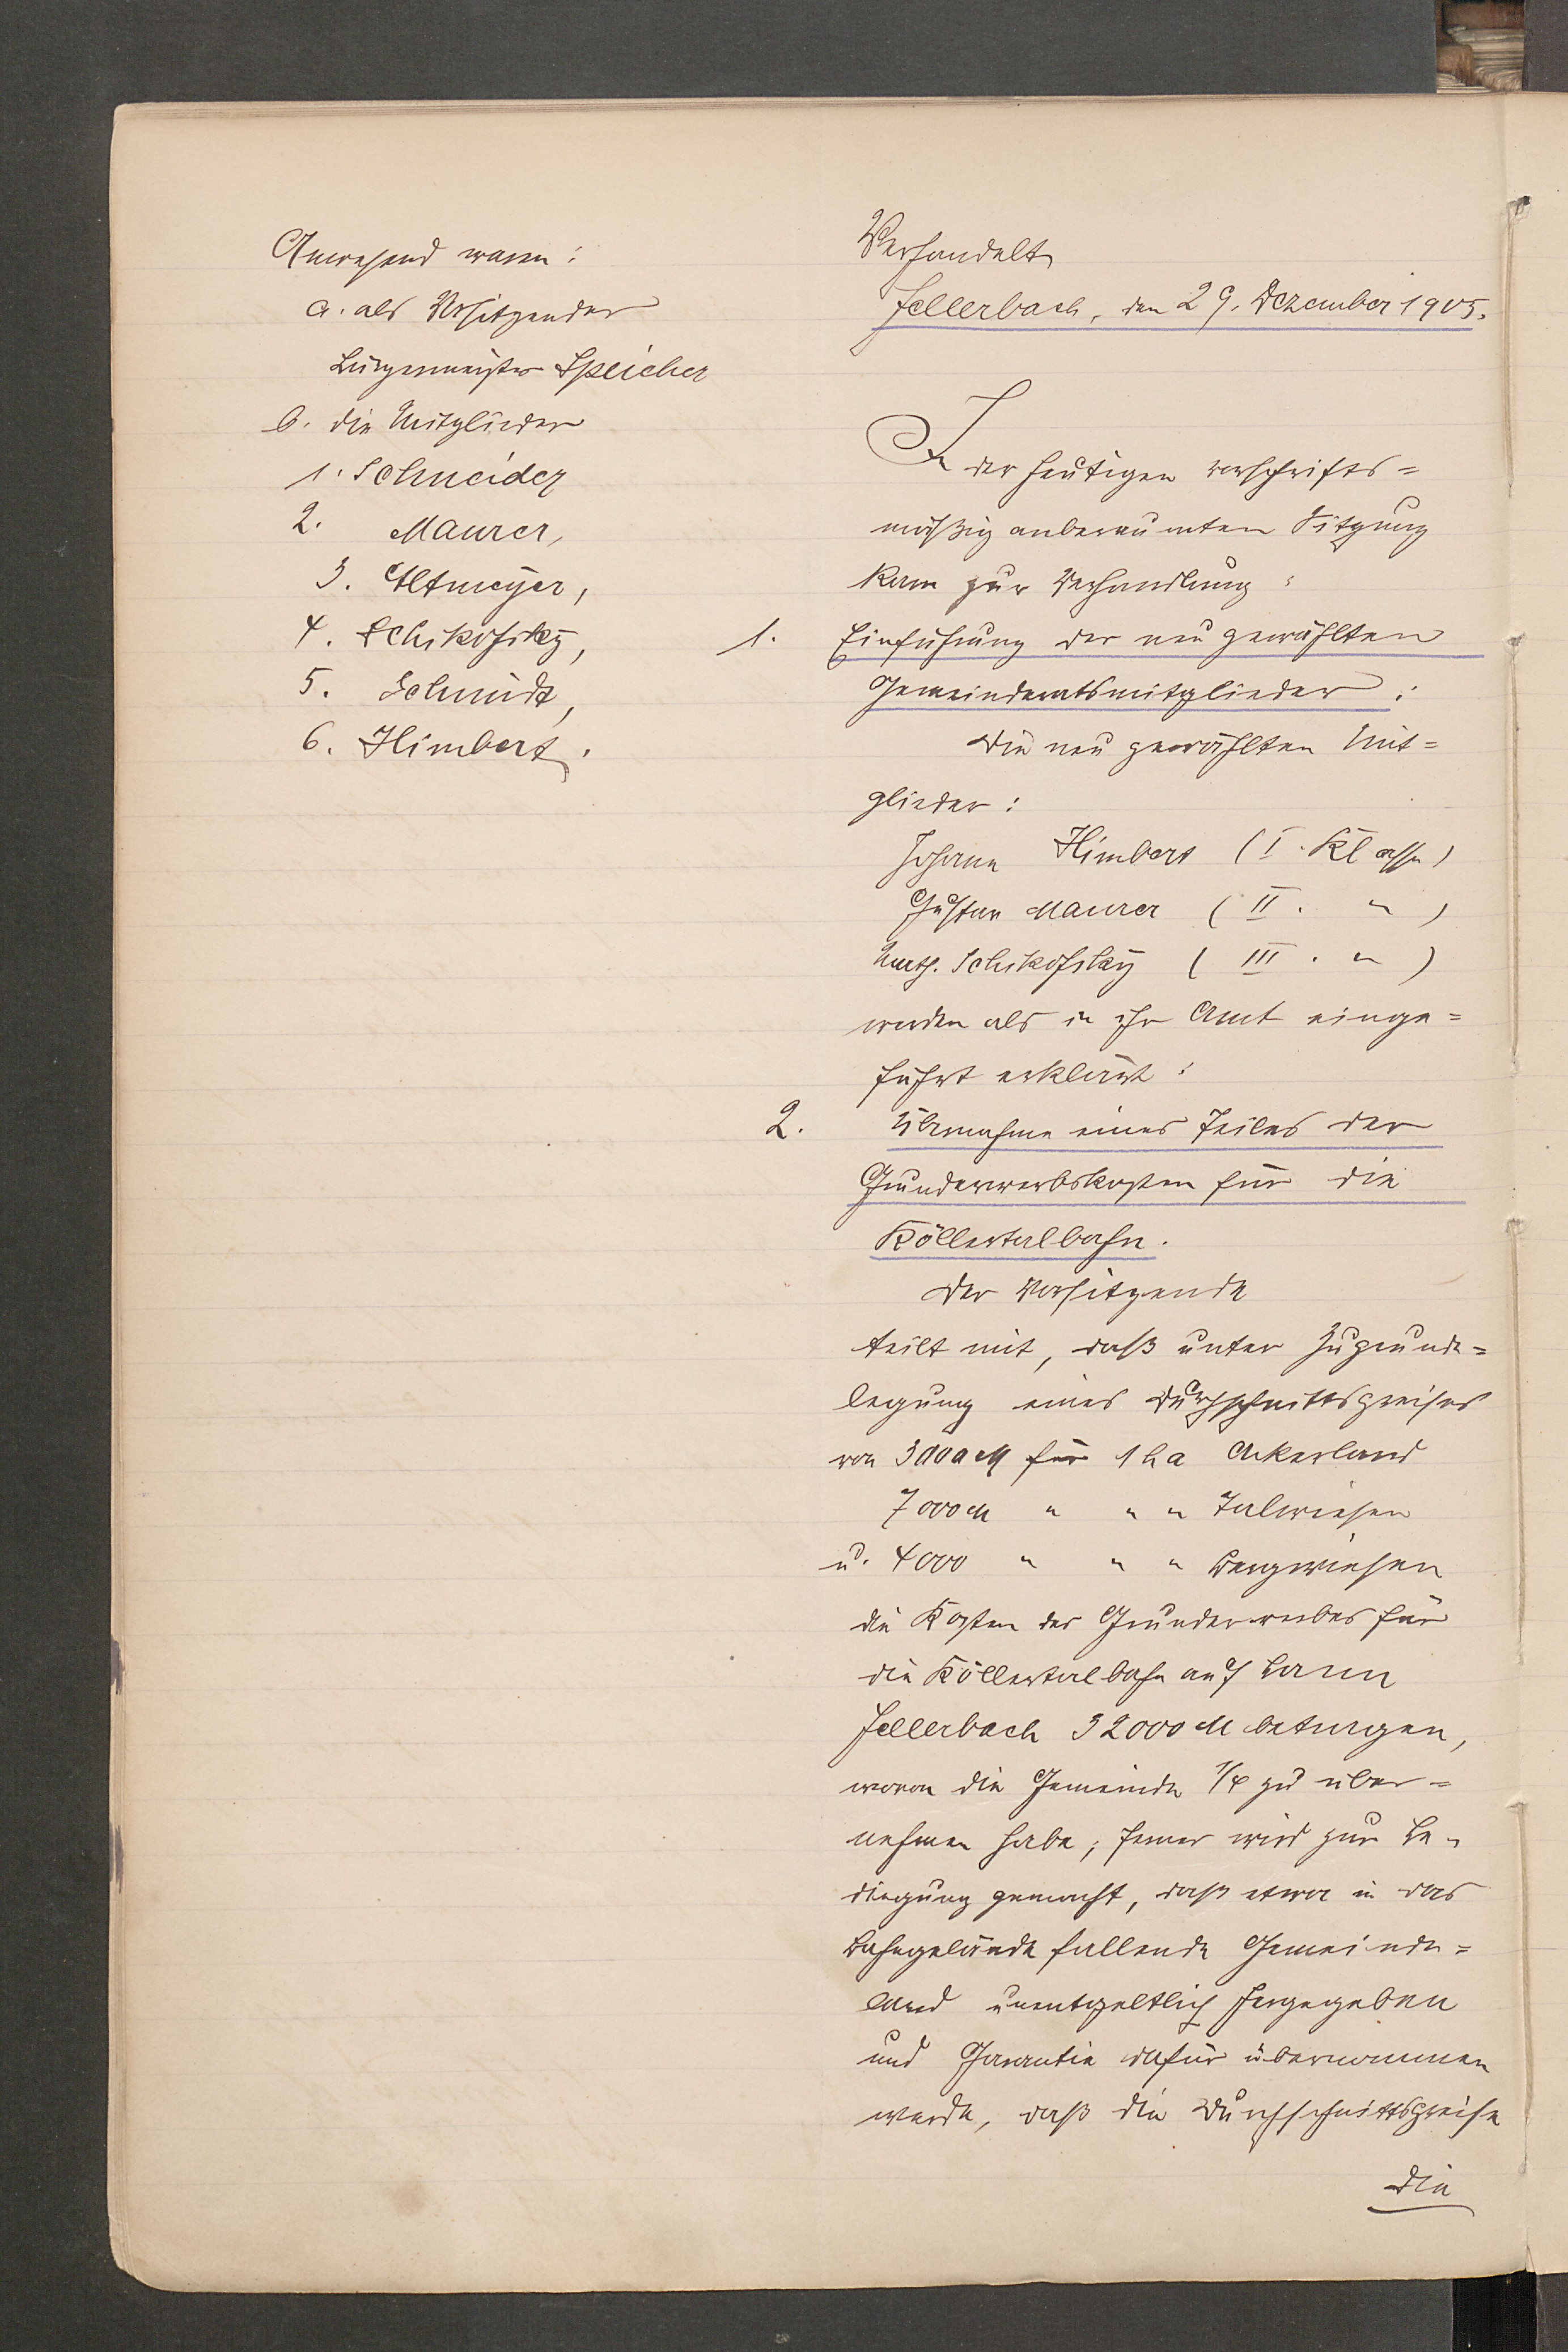 Anwesend waren:
a. als Vorsitzender
Bürgermeister Speicher
b. die Mitglieder
1. Schneider
2. Maurer,
3. Altmeyer,
4. Schikofsky,
5. Schmidt,
6. Himbert.
Verhandelt
Sellerbach, den 29. Dezember 1905.
In der heutigen vorschrifts=
mäßig anberaumten Sitzung
kam zur Verhandlung:
1. Einführung der neu gewählten
Gemeinderatsmitglieder:
Die neu gewählten Mit=
glieder:
Johann Himbert (I. Klasse)
Gustav Maurer (II. " )
Math. Schikofsky (III. " )
werden als in ihr Amt einge=
führt erklärt:
2. Übernahme eines Teiles der
Grunderwerbskosten für die
Köllertalbahn.
Der Vorsitzende
teilt mit, daß unter Zugrunde=
legung eines Durchschnittspreises
von 3000 M für 1 ha Ackerland
7000 M " " " Talwiesen
u. 4000 " " " Bergwiesen
die Kosten des Grunderwerbes für
die Köllertalbahn auf Bann
Sellerbach 32000 M betragen,
wovon die Gemeinde 1/4 zu über=
nehmen habe; ferner wird zur Be=
dingung gemacht, daß etwa in das
Bahngelände fallende Gemeinde=
land unentgeltlich hergegeben
und Garantie dafür übernommen
werde, daß die Durchschnittspreise
die